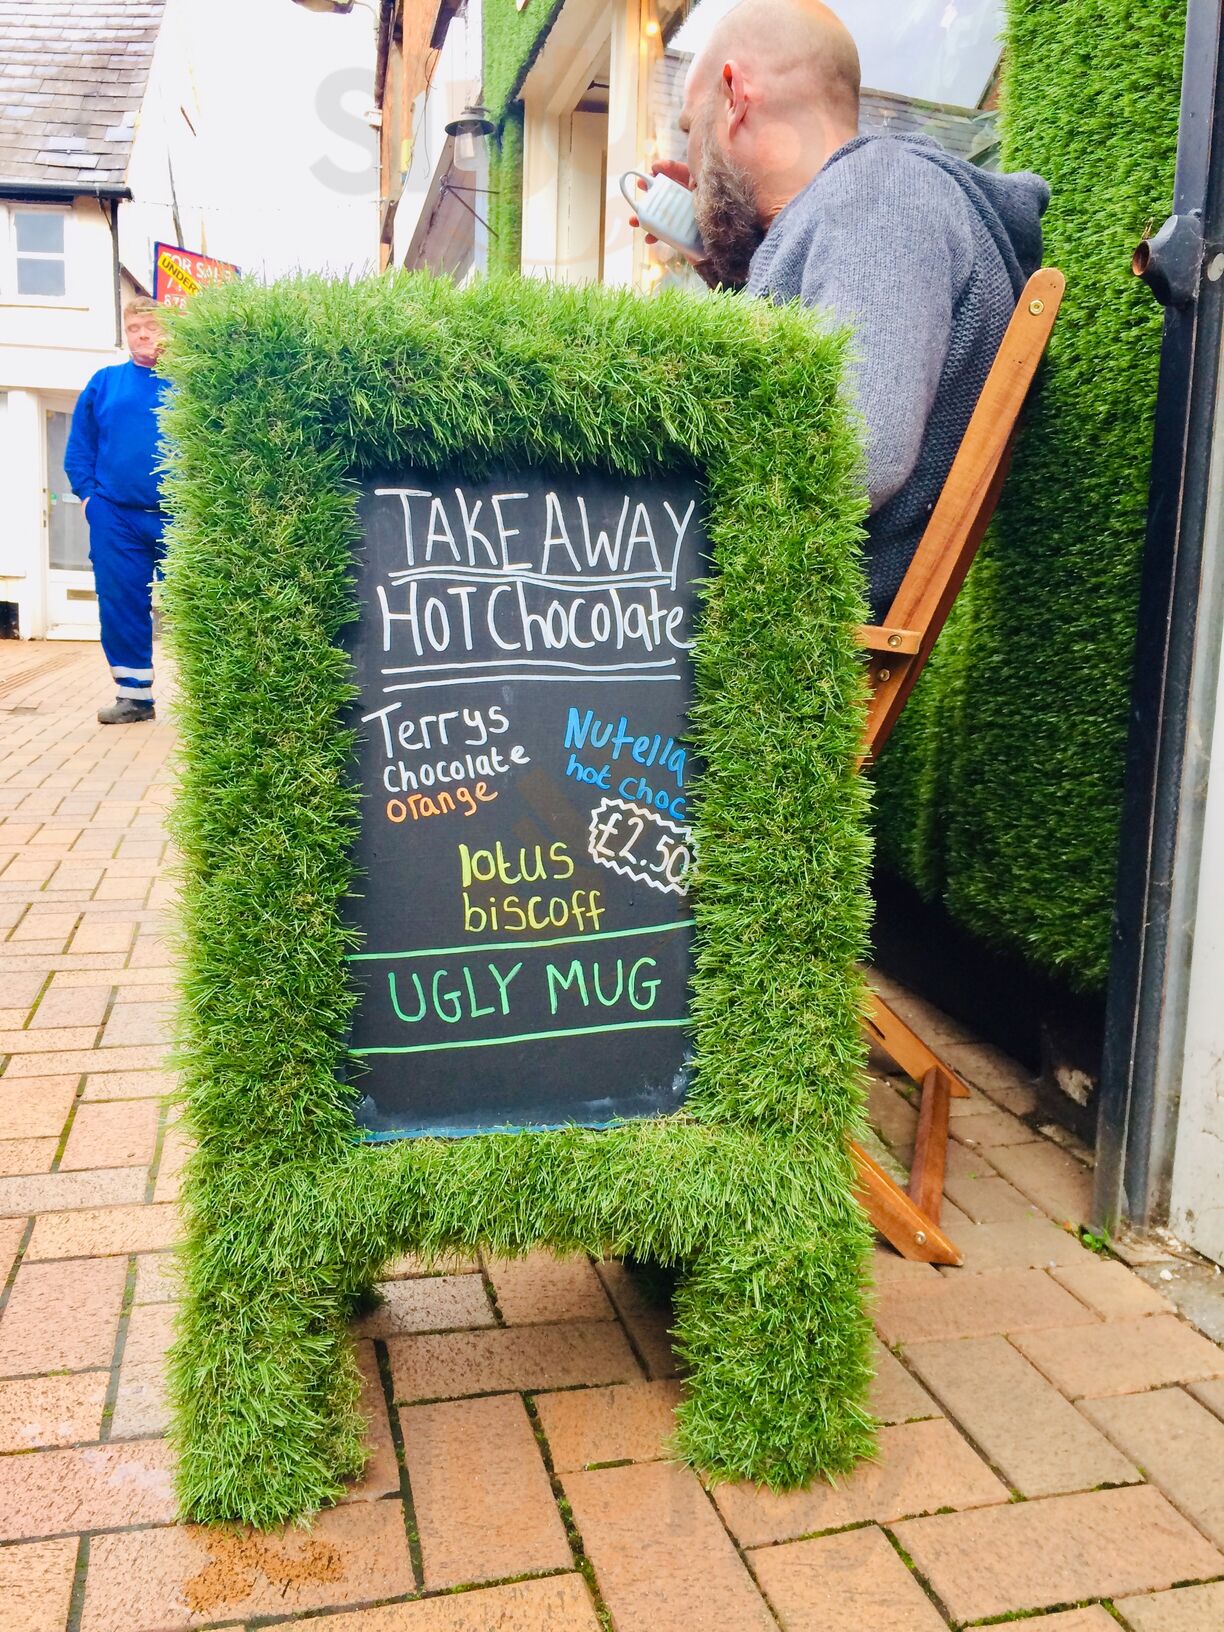 FOR SALE
UNDER
TAKE AWAY
HOT Chocolate
Terrys
chocolate
orange
Nutella
hot choc
£2.50
lotus
biscoff
UGLY MUG